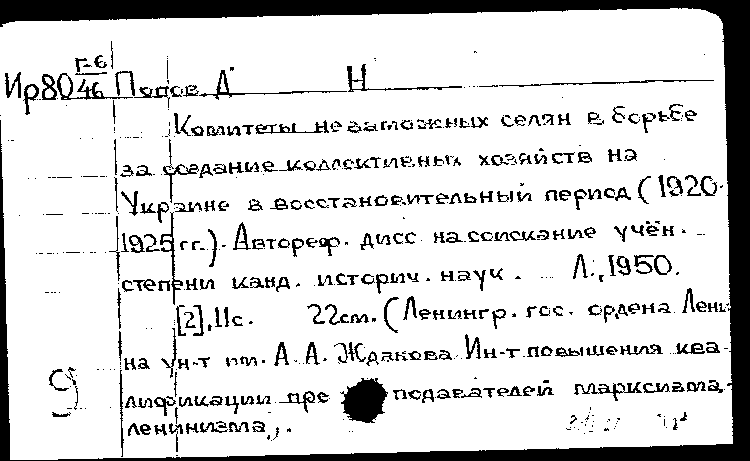 Г-6
Ир80 46 Попов. А Н
Комитеты незаможных селян в борьбе
за создание коллективных хозяйств на
Украине в восстановительный период (1920-
1925 гг.). Автореф. дисс. на соискание учён.
степени канд. историч. наук. Л., 1950.
[2], 11с. 22см. (Ленингр. гос. ордена Лени-
на ун-т им. А. А. Жданова Ин-т повышения ква-
лификации преподавателей марксизма-
ленинизма).
9